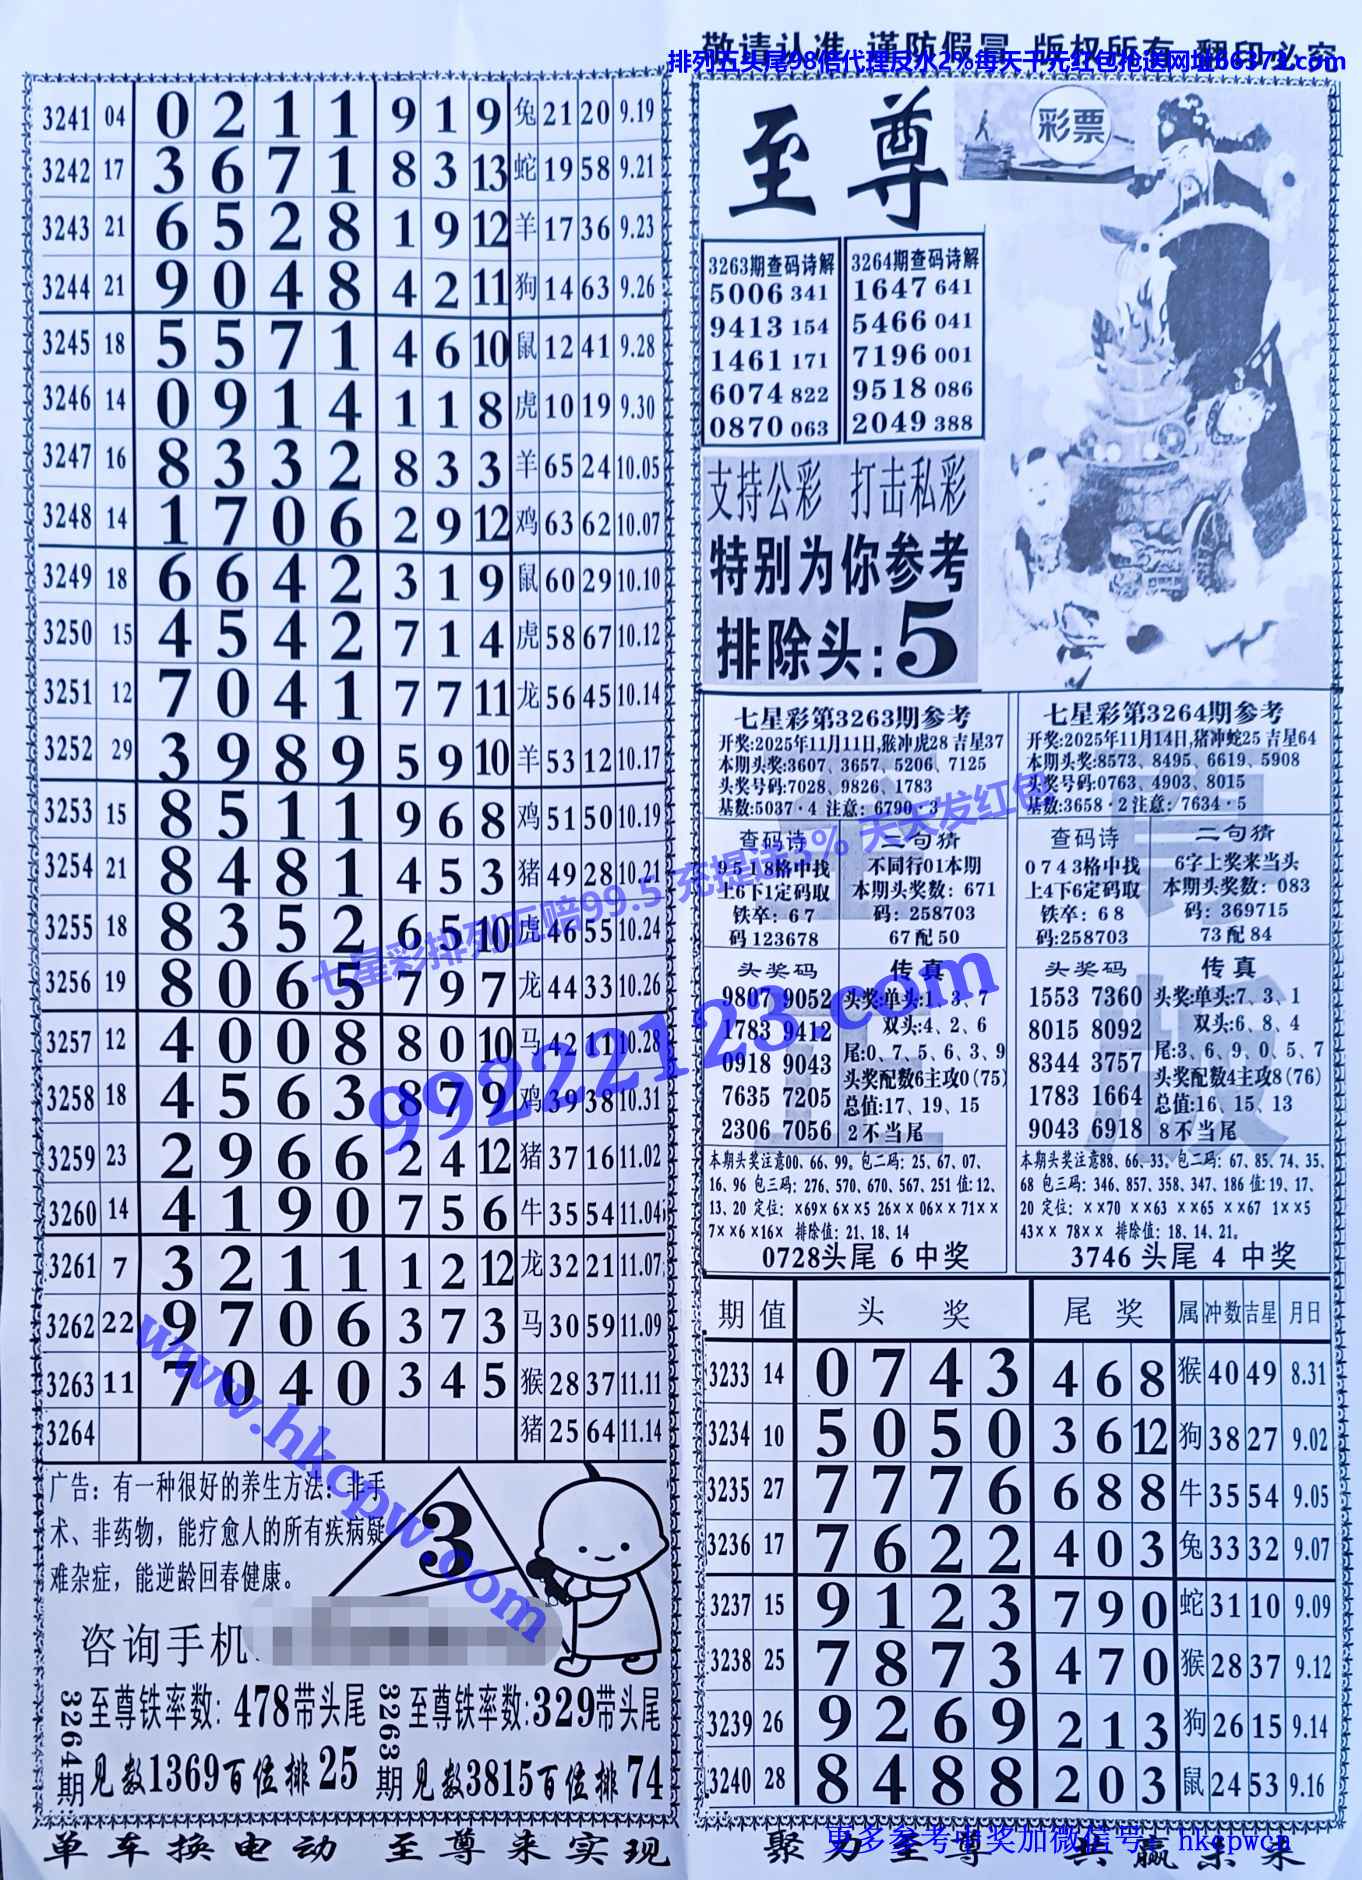 敬请认准 谨防假冒 版权所有 翻印必究
排列五头尾98倍代理反水2%每天千元红包抢送网址66371.com
3241 04 0 2 1 1 9 1 9 兔 21 20 9.19
3242 17 3 6 7 1 8 3 13 蛇 19 58 9.21
3243 21 6 5 2 8 1 9 12 羊 17 36 9.23
3244 21 9 0 4 8 4 2 11 狗 14 63 9.26
3245 18 5 5 7 1 4 6 10 鼠 12 41 9.28
3246 14 0 9 1 4 1 1 8 虎 10 19 9.30
3247 16 8 3 3 2 8 3 3 羊 65 24 10.05
3248 14 1 7 0 6 2 9 12 鸡 63 62 10.07
3249 18 6 6 4 2 3 1 9 鼠 60 29 10.10
3250 15 4 5 4 2 7 1 4 虎 58 67 10.12
3251 12 7 0 4 1 7 7 11 龙 56 45 10.14
3252 29 3 9 8 9 5 9 10 羊 53 12 10.17
3253 15 8 5 1 1 9 6 8 鸡 51 50 10.19
3254 21 8 4 8 1 4 5 3 猪 49 28 10.21
3255 18 8 3 5 2 6 5 10 虎 46 55 10.24
3256 19 8 0 6 5 7 9 7 龙 44 33 10.26
3257 12 4 0 0 8 8 0 10 马 42 11 10.28
3258 18 4 5 6 3 8 7 9 鸡 39 38 10.31
3259 23 2 9 6 6 2 4 12 猪 37 16 11.02
3260 14 4 1 9 0 7 5 6 牛 35 54 11.04
3261 7 3 2 1 1 1 2 12 龙 32 21 11.07
3262 22 9 7 0 6 3 7 3 马 30 59 11.09
3263 11 7 0 4 0 3 4 5 猴 28 37 11.11
3264 猪 25 64 11.14
广告：有一种很好的养生方法：非手
术、非药物，能疗愈人的所有疾病疑
难杂症，能逆龄回春健康。
3
咨询手机:
3264期
至尊铁率数: 478带头尾
见数1369百位排 25
3263期
至尊铁率数:329带头尾
见数3815百位排 74
单车换电动 至尊来实现
至尊
彩票
3263期查码诗解
5006 341
9413 154
1461 171
6074 822
0870 063
3264期查码诗解
1647 641
5466 041
7196 001
9518 086
2049 388
支持公彩 打击私彩
特别为你参考
排除头:5
七星彩第3263期参考
开奖:2025年11月11日,猴冲虎28 吉星37
本期头奖:3607、3657、5206、7125
头奖号码:7028、9826、1783
基数:5037·4 注意: 6790·3
查码诗
9518格中找
上6下1定码取
铁卒: 67
码 123678
二句猜
不同行01本期
本期头奖数: 671
码: 258703
67 配 50
头奖码
9807 9052
1783 9412
0918 9043
7635 7205
2306 7056
传真
头奖:单头:1、3、7
双头:4、2、6
尾:0、7、5、6、3、9
头奖配数6主攻0(75)
总值:17、19、15
2不当尾
本期头奖注意00、66、99。包二码: 25、67、07、
16、96 包三码: 276、570、670、567、251 值:12、
13、20 定位: ×69× 6××5 26×× 06×× 71××
7××6 ×16× 排除值: 21、18、14
0728头尾 6 中奖
七星彩第3264期参考
开奖:2025年11月14日,猪冲蛇25 吉星64
本期头奖:8573、8495、6619、5908
头奖号码:0763、4903、8015
基数:3658·2 注意: 7634·5
查码诗
0743格中找
上4下6定码取
铁卒: 68
码:258703
二句猜
6字上奖来当头
本期头奖数: 083
码: 369715
73 配 84
头奖码
1553 7360
8015 8092
8344 3757
1783 1664
9043 6918
传真
头奖:单头:7、3、1
双头:6、8、4
尾:3、6、9、0、5、7
头奖配数4主攻8(76)
总值:16、15、13
8不当尾
本期头奖注意88、66、33。包二码: 67、85、74、35、
68 包三码: 346、857、358、347、186 值:19、17、
20 定位: ××70 ××63 ××65 ××67 1××5
43×× 78×× 排除值: 18、14、21。
3746 头尾 4 中奖
期 值 头奖 尾奖 属 冲数 吉星 月日
3233 14 0 7 4 3 4 6 8 猴 40 49 8.31
3234 10 5 0 5 0 3 6 12 狗 38 27 9.02
3235 27 7 7 7 6 6 8 8 牛 35 54 9.05
3236 17 7 6 2 2 4 0 3 兔 33 32 9.07
3237 15 9 1 2 3 7 9 0 蛇 31 10 9.09
3238 25 7 8 7 3 4 7 0 猴 28 37 9.12
3239 26 9 2 6 9 2 1 3 狗 26 15 9.14
3240 28 8 4 8 8 2 0 3 鼠 24 53 9.16
聚力至尊 共赢未来
更多参考中奖加微信号：hkcpwcn
七星彩排列五赔99.5 充提送3% 天天发红包
99222123.com
www.hkcpw.com